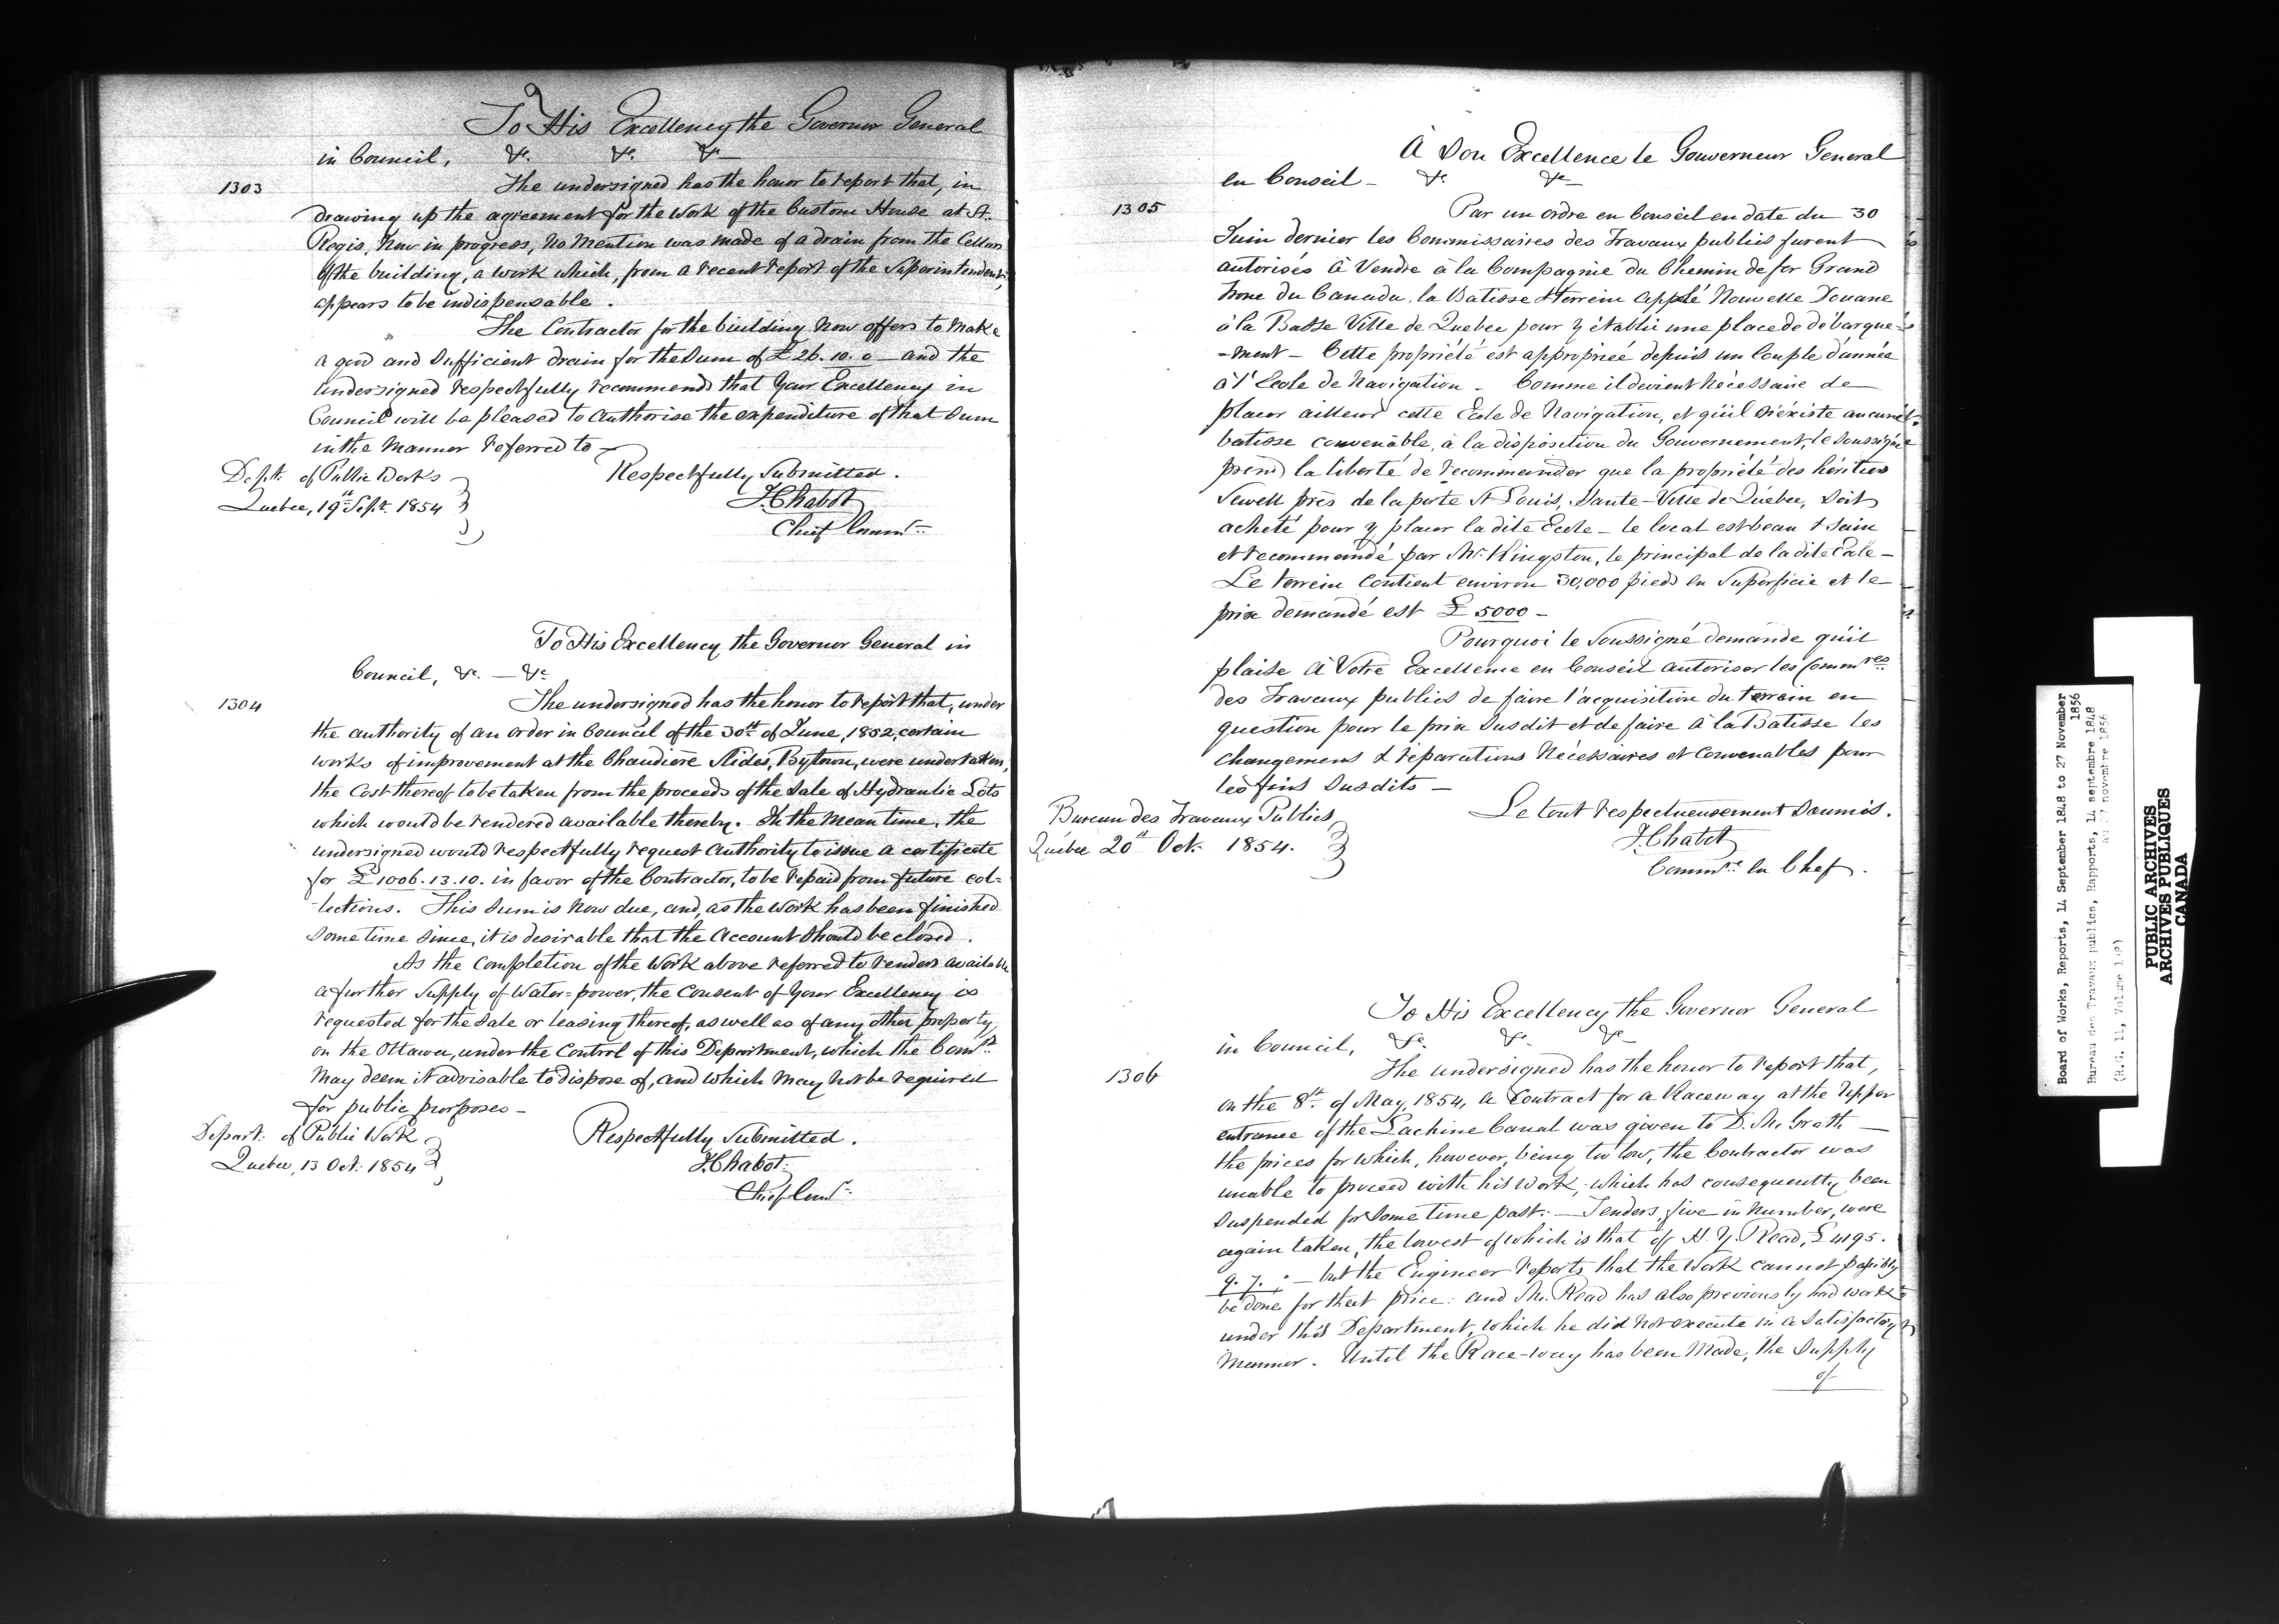 To His Excellency the Governor General
in Council, &c. &c. &c
1303
The undersigned has the honor to report that, in
drawing up the agreement for the Work of the Custom House at St.
Regis, now in progress, no mention was made of a drain from the Cellar
of the building, a work which, from a recent report of the Superintendent,
appears to be indispensable.
The Contractor for the building now offers to make
a good and sufficient drain for the sum of £26.10.0 — and the
undersigned respectfully recommends that Your Excellency in
Council will be pleased to authorise the expenditure of that sum
in the manner referred to —
Dept. of Public Works
Quebec, 19th Sept. 1854
Respectfully Submitted.
J. Chabot
Chief Commr.
To His Excellency the Governor General in
Council, &c. — &c
1304
The undersigned has the honor to report that, under
the authority of an order in Council of the 30th of June, 1852, certain
works of improvement at the Chaudière Slides, Bytown, were undertaken,
the Cost thereof to be taken from the proceeds of the sale of Hydraulic Lots
which would be rendered available thereby. In the mean time, the
undersigned would respectfully request authority to issue a certificate
for £1006.13.10. in favor of the Contractor, to be repaid from future col=
lections. This sum is now due, and, as the work has been finished
some time since, it is desirable that the Account should be closed.
As the completion of the Work above referred to renders available
a further supply of Water=power, the Consent of Your Excellency is
requested for the sale or leasing thereof, as well as of any other property
on the Ottawa, under the Control of this Department, which the Comrs.
may deem it advisable to dispose of, and which may not be required
for public purposes —
Depart. of Public Work
Quebec, 13 Oct. 1854
Respectfully Submitted.
J. Chabot.
Chief Comr.
À Son Excellence le Gouverneur General
en Conseil — &c &c —
1305
Par un ordre en Conseil en date du 30
Juin dernier les Commissaires des Travaux publics furent
autorisés à Vendre à la Compagnie du Chemin de fer Grand
Tronc du Canada, la Batisse & terrein applé Nouvelle Douane
à la Basse Ville de Quebec pour y établir une place de débarque=
-ment — Cette propriété est appropriée depuis un Couple d'année
à l'Ecole de Navigation — Comme il devient nécessaire de
placer ailleurs cette Ecole de Navigation, et qu'il n'existe aucune
batisse convenable, à la disposition du Gouvernement, le soussigné
prend la liberté de recommander que la propriété des héritiers
Sewell près de la porte St Louis, Haute-Ville de Québec, soit
acheté pour y placer la dite Ecole — le local est beau & sain
et recommandé par Mr. Kingston, le principal de la dite Ecole —
Le terrein contient environ 30,000 pieds en superficie et le
prix demandé est £5000 —
Pourquoi le Soussigné demande qu'il
plaise à Votre Excellence en Conseil autoriser les Commres
des Travaux publics de faire l'acquisition du terrain en
question pour le prix susdit et de faire à la Bâtisse les
changemens & réparations Nécessaires et Convenables pour
les fins susdits —
Bureau des Travaux Publics,
Québec 20th Oct. 1854.
Le tout respectueusement soumis.
J. Chabot
Commre. en Chef.
To His Excellency the Governor General
in Council, &c. &c. &c —
1306
The undersigned has the honor to report that,
on the 8th. of May, 1854, a Contract for a Raceway at the Upper
entrance of the Lachine Canal was given to D. McGrath —
the prices for which, however, being too low, the Contractor was
unable to proceed with his work, which has consequently been
suspended for some time past: — Tenders, five in number, were
again taken, the lowest of which is that of H. Y. Read, £4195.
9. 7. : — but the Engineer reports that the Work cannot possibly
be done for that price: and Mr. Read has also previously had work
under this Department, which he did not execute in a satisfactory
manner. Until the Race-way has been made, the supply
of
Board of Works, Reports, 14 September 1848 to 27 November
1856
Bureau des Travaux publics, Rapports, 14 septembre 1848
au 27 novembre 1856
(R.G. 11, Volume
PUBLIC ARCHIVES
ARCHIVES PUBLIQUES
CANADA